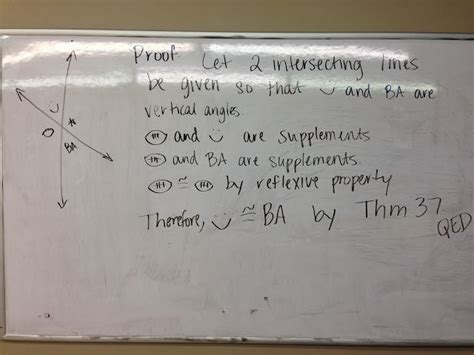 Proof. Let 2 intersecting lines
be given so that ‿̈ and BA are
vertical angles.
(III) and ‿̈ are supplements
(III) and BA are supplements.
(III) ≅ (III) by reflexive property
Therefore, ‿̈ ≅ BA by Thm 37.
QED
BA